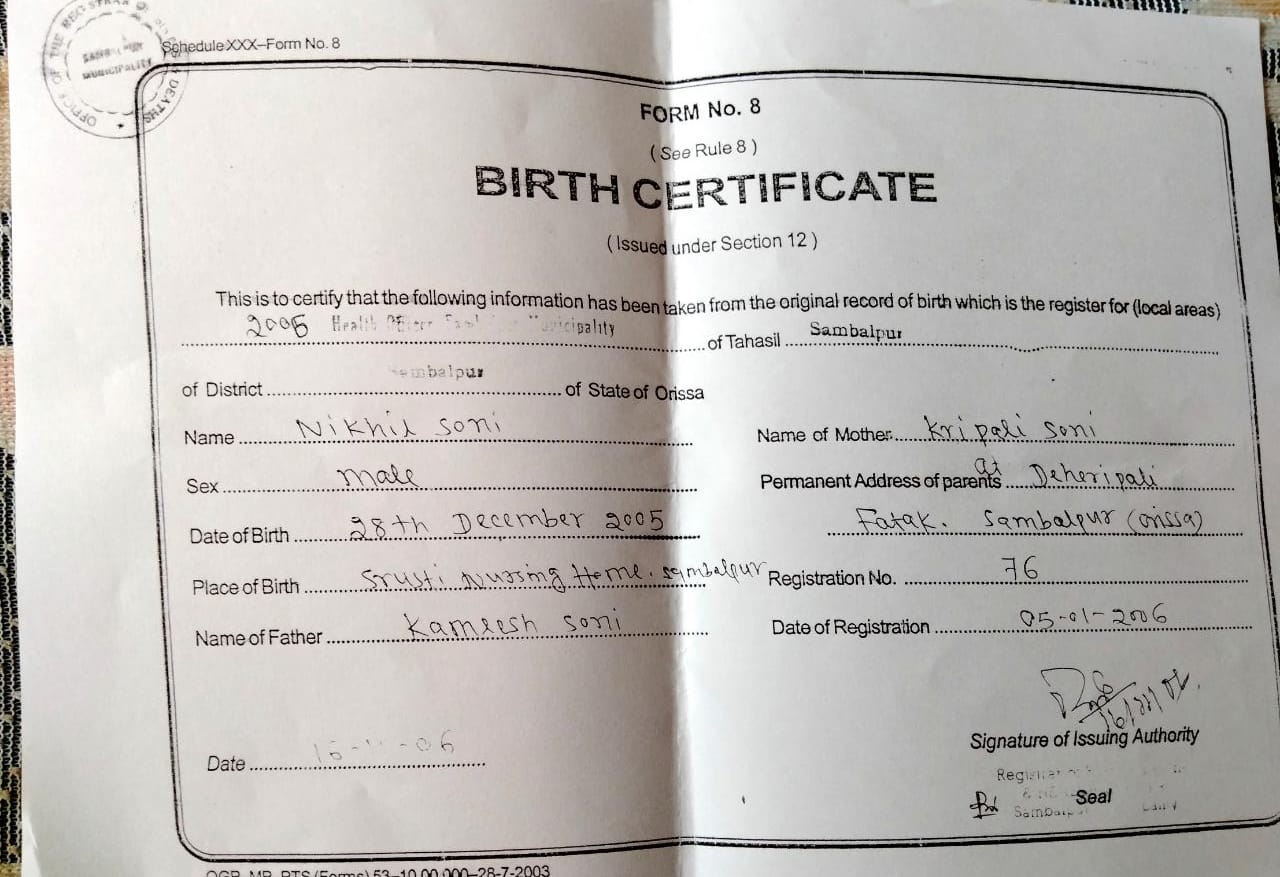 OFFICE OF THE REGISTRAR OF
DEATHS
MUNICIPALITY
Schedule XXX–Form No. 8
FORM No. 8
( See Rule 8 )
BIRTH CERTIFICATE
( Issued under Section 12 )
This is to certify that the following information has been taken from the original record of birth which is the register for (local areas)
2005 Health Officer Municipality of Tahasil Sambalpur
of District Sambalpur of State of Orissa
Name Nikhil Soni Name of Mother Kripali Soni
Sex male Permanent Address of parents at Deheripali
Date of Birth 28th December 2005 Fatak. Sambalpur (orissa)
Place of Birth Srusti Nursing Home. Sambalpur Registration No. 76
Name of Father Kameesh Soni Date of Registration 05-01-2006
Signature of Issuing Authority
Date -06
Seal
53–10,00,000–28-7-2003